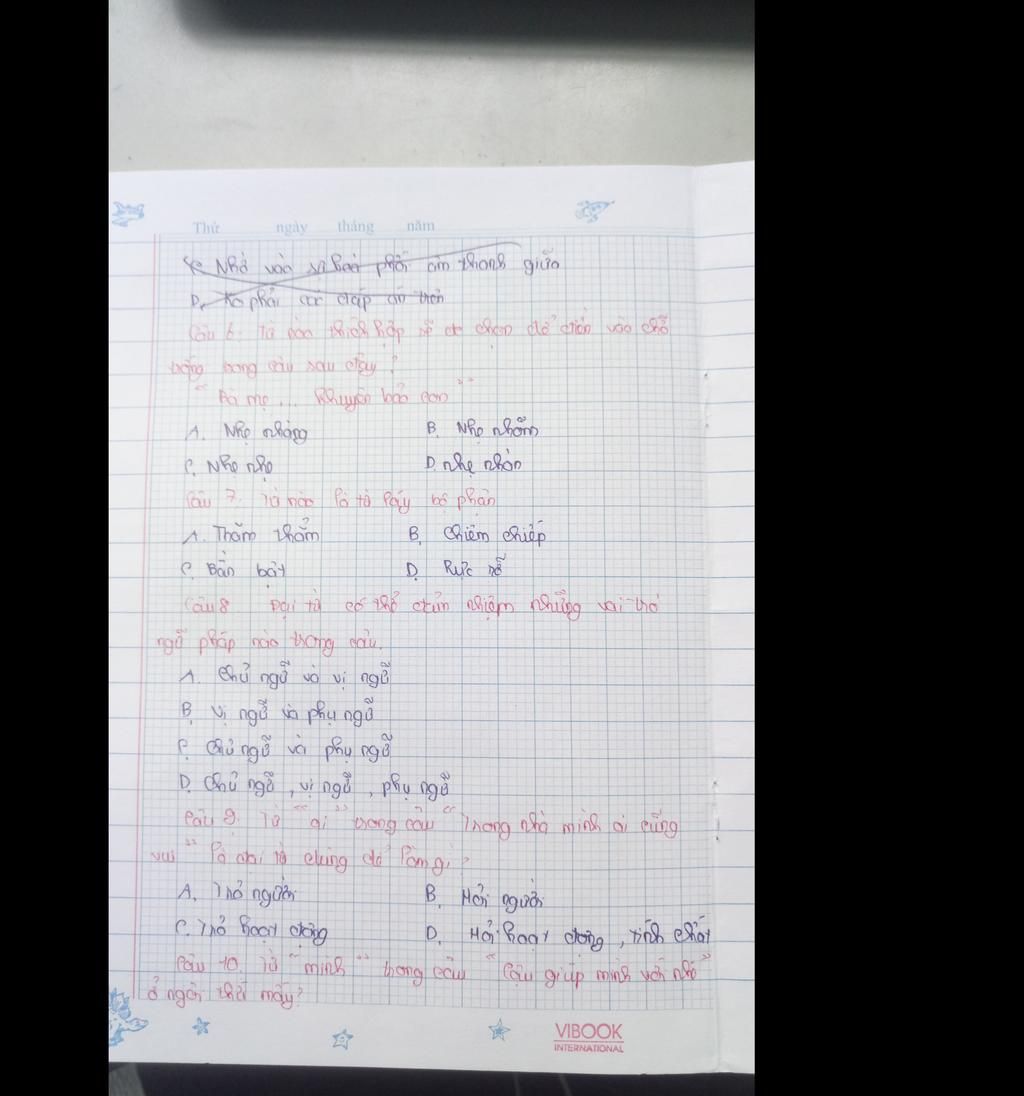 Thứ ngày tháng năm
C. Nhờ vào sự hoà phối âm thanh giữa
D. Ko phải các đáp án trên
Câu 6: Từ nào thích hợp để chọn để điền vào chỗ
trống trong câu sau đây?
" Bà mẹ ... khuyên bảo con "
A. Nhẹ nhàng B. Nhẹ nhõm
C. Nhẹ nhẹ D. nhẹ nhàn
Câu 7. Từ nào là từ láy bộ phận
A. Thăm thẳm B. Chiêm chiếp
C. Bần bật D. Rực rỡ
Câu 8. Đại từ có thể đảm nhiệm những vai trò
ngữ pháp nào trong câu.
A. Chủ ngữ và vị ngữ
B. Vị ngữ và phụ ngữ
C. Chủ ngữ và phụ ngữ
D. Chủ ngữ, vị ngữ, phụ ngữ
Câu 9. Từ " ai " trong câu " Trong nhà mình ai cũng
vui " là đại từ dùng để làm gì?
A. Trỏ người B. Hỏi người
C. Trỏ hoạt động D. Hỏi hoạt động, tính chất
Câu 10. Từ " mình " trong câu " Cậu giúp mình với nhé "
ở ngôi thứ mấy?
VIBOOK
INTERNATIONAL